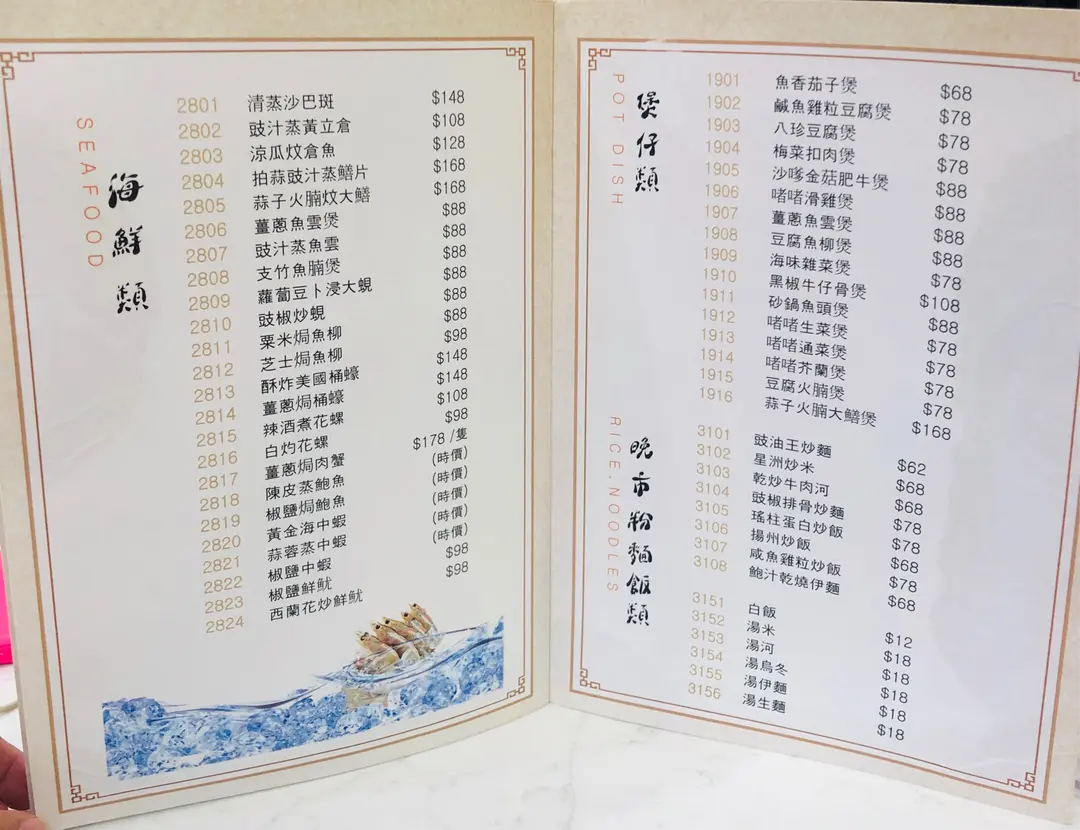 SEAFOOD
海鮮類
2801 清蒸沙巴斑 $148
2802 豉汁蒸黃立倉 $108
2803 涼瓜炆倉魚 $128
2804 拍蒜豉汁蒸鱔片 $168
2805 蒜子火腩炆大鱔 $168
2806 薑蔥魚雲煲 $88
2807 豉汁蒸魚雲 $88
2808 支竹魚腩煲 $88
2809 蘿蔔豆卜浸大蜆 $88
2810 豉椒炒蜆 $88
2811 粟米焗魚柳 $88
2812 芝士焗魚柳 $98
2813 酥炸美國桶蠔 $148
2814 薑蔥焗桶蠔 $148
2815 辣酒煮花螺 $108
2816 白灼花螺 $98
2817 薑蔥焗肉蟹 $178 /隻
2818 陳皮蒸鮑魚 (時價)
2819 椒鹽焗鮑魚 (時價)
2820 黃金海中蝦 (時價)
2821 蒜蓉蒸中蝦 (時價)
2822 椒鹽中蝦 (時價)
2823 椒鹽鮮魷 $98
2824 西蘭花炒鮮魷 $98
POT DISH
煲仔類
1901 魚香茄子煲 $68
1902 鹹魚雞粒豆腐煲 $78
1903 八珍豆腐煲 $78
1904 梅菜扣肉煲 $78
1905 沙嗲金菇肥牛煲 $88
1906 啫啫滑雞煲 $88
1907 薑蔥魚雲煲 $88
1908 豆腐魚柳煲 $88
1909 海味雜菜煲 $78
1910 黑椒牛仔骨煲 $108
1911 砂鍋魚頭煲 $88
1912 啫啫生菜煲 $78
1913 啫啫通菜煲 $78
1914 啫啫芥蘭煲 $78
1915 豆腐火腩煲 $78
1916 蒜子火腩大鱔煲 $168
RICE.NOODLES
晚市粉麵飯類
3101 豉油王炒麵 $62
3102 星洲炒米 $68
3103 乾炒牛肉河 $68
3104 豉椒排骨炒麵 $78
3105 瑤柱蛋白炒飯 $78
3106 揚州炒飯 $68
3107 咸魚雞粒炒飯 $78
3108 鮑汁乾燒伊麵 $68
3151 白飯 $12
3152 湯米 $18
3153 湯河 $18
3154 湯烏冬 $18
3155 湯伊麵 $18
3156 湯生麵 $18